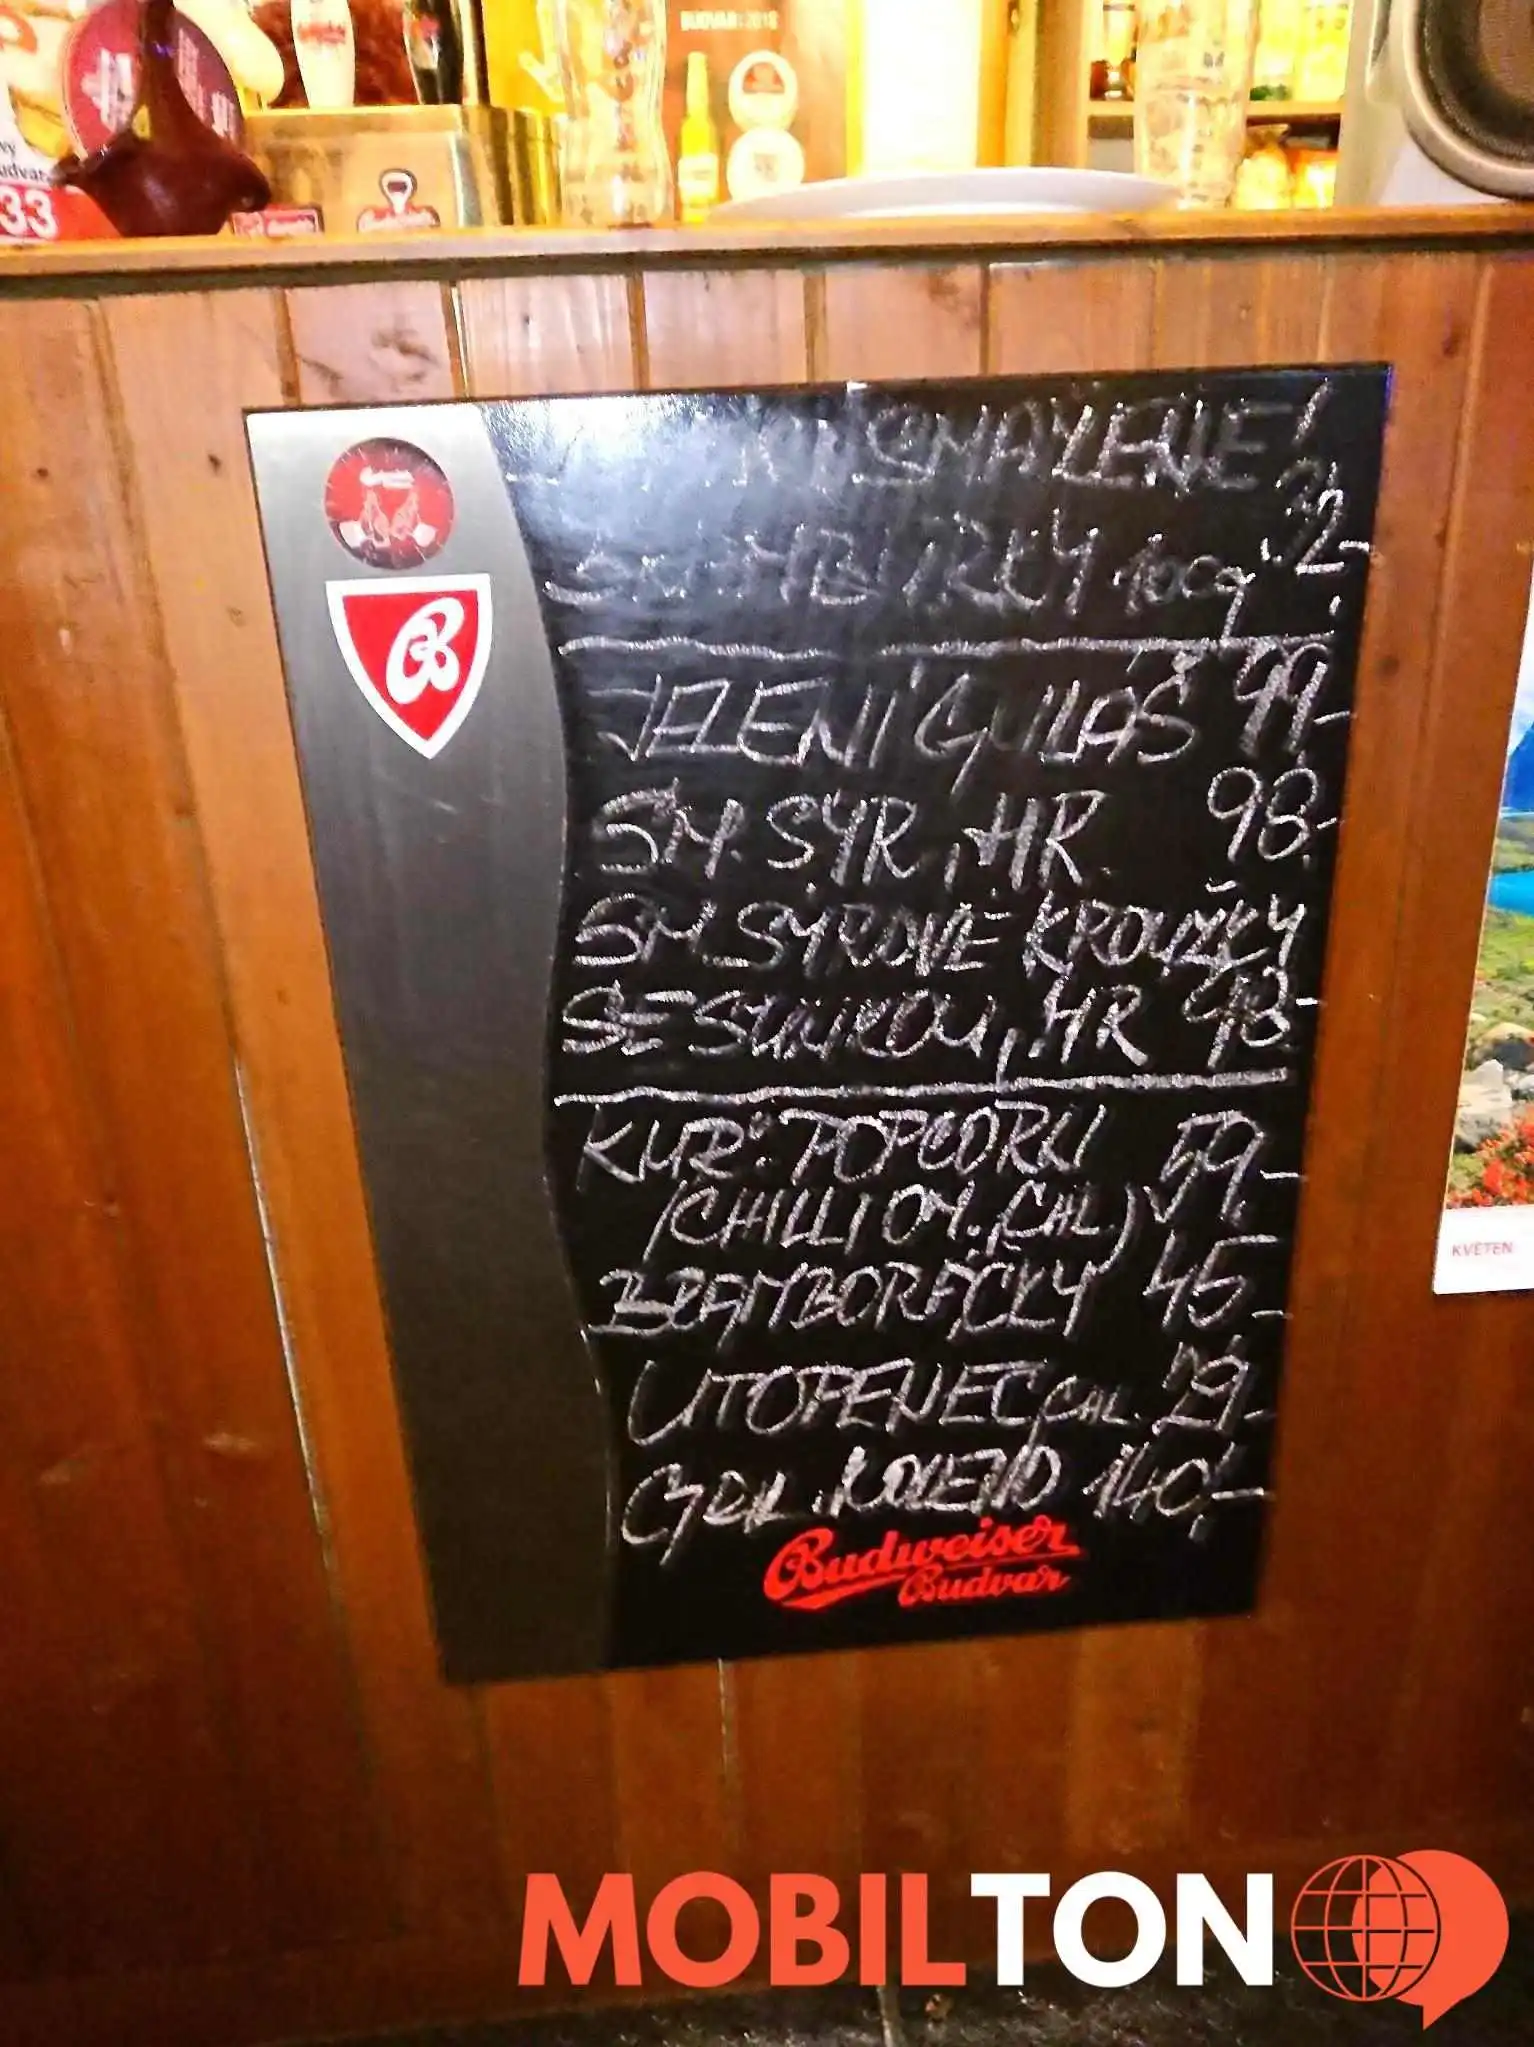 BUDVAR 2018
33
SMAŽENÉ!
100g 32,-
JELENÍ GULÁŠ 99,-
SM. SÝR, HR. 98,-
SM SÝROVÉ KROUŽKY
SE ŠUNKOU, HR 98,-
KUŘ. POPCORN 59,-
(CHILLI OM., CHL)
BRAMBORÁČKY 45,-
UTOPENEC, CHL. 29,-
GRIL. KOLENO 140,-
Budweiser
Budvar
KVĚTEN
MOBILTON